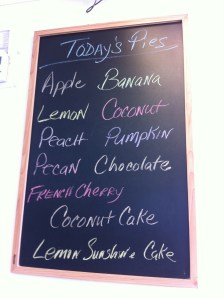 TODAY'S PIES
Apple Banana
Lemon Coconut
Peach Pumpkin
Pecan Chocolate
FRENCH CHERRY
Coconut Cake
Lemon Sunshine Cake